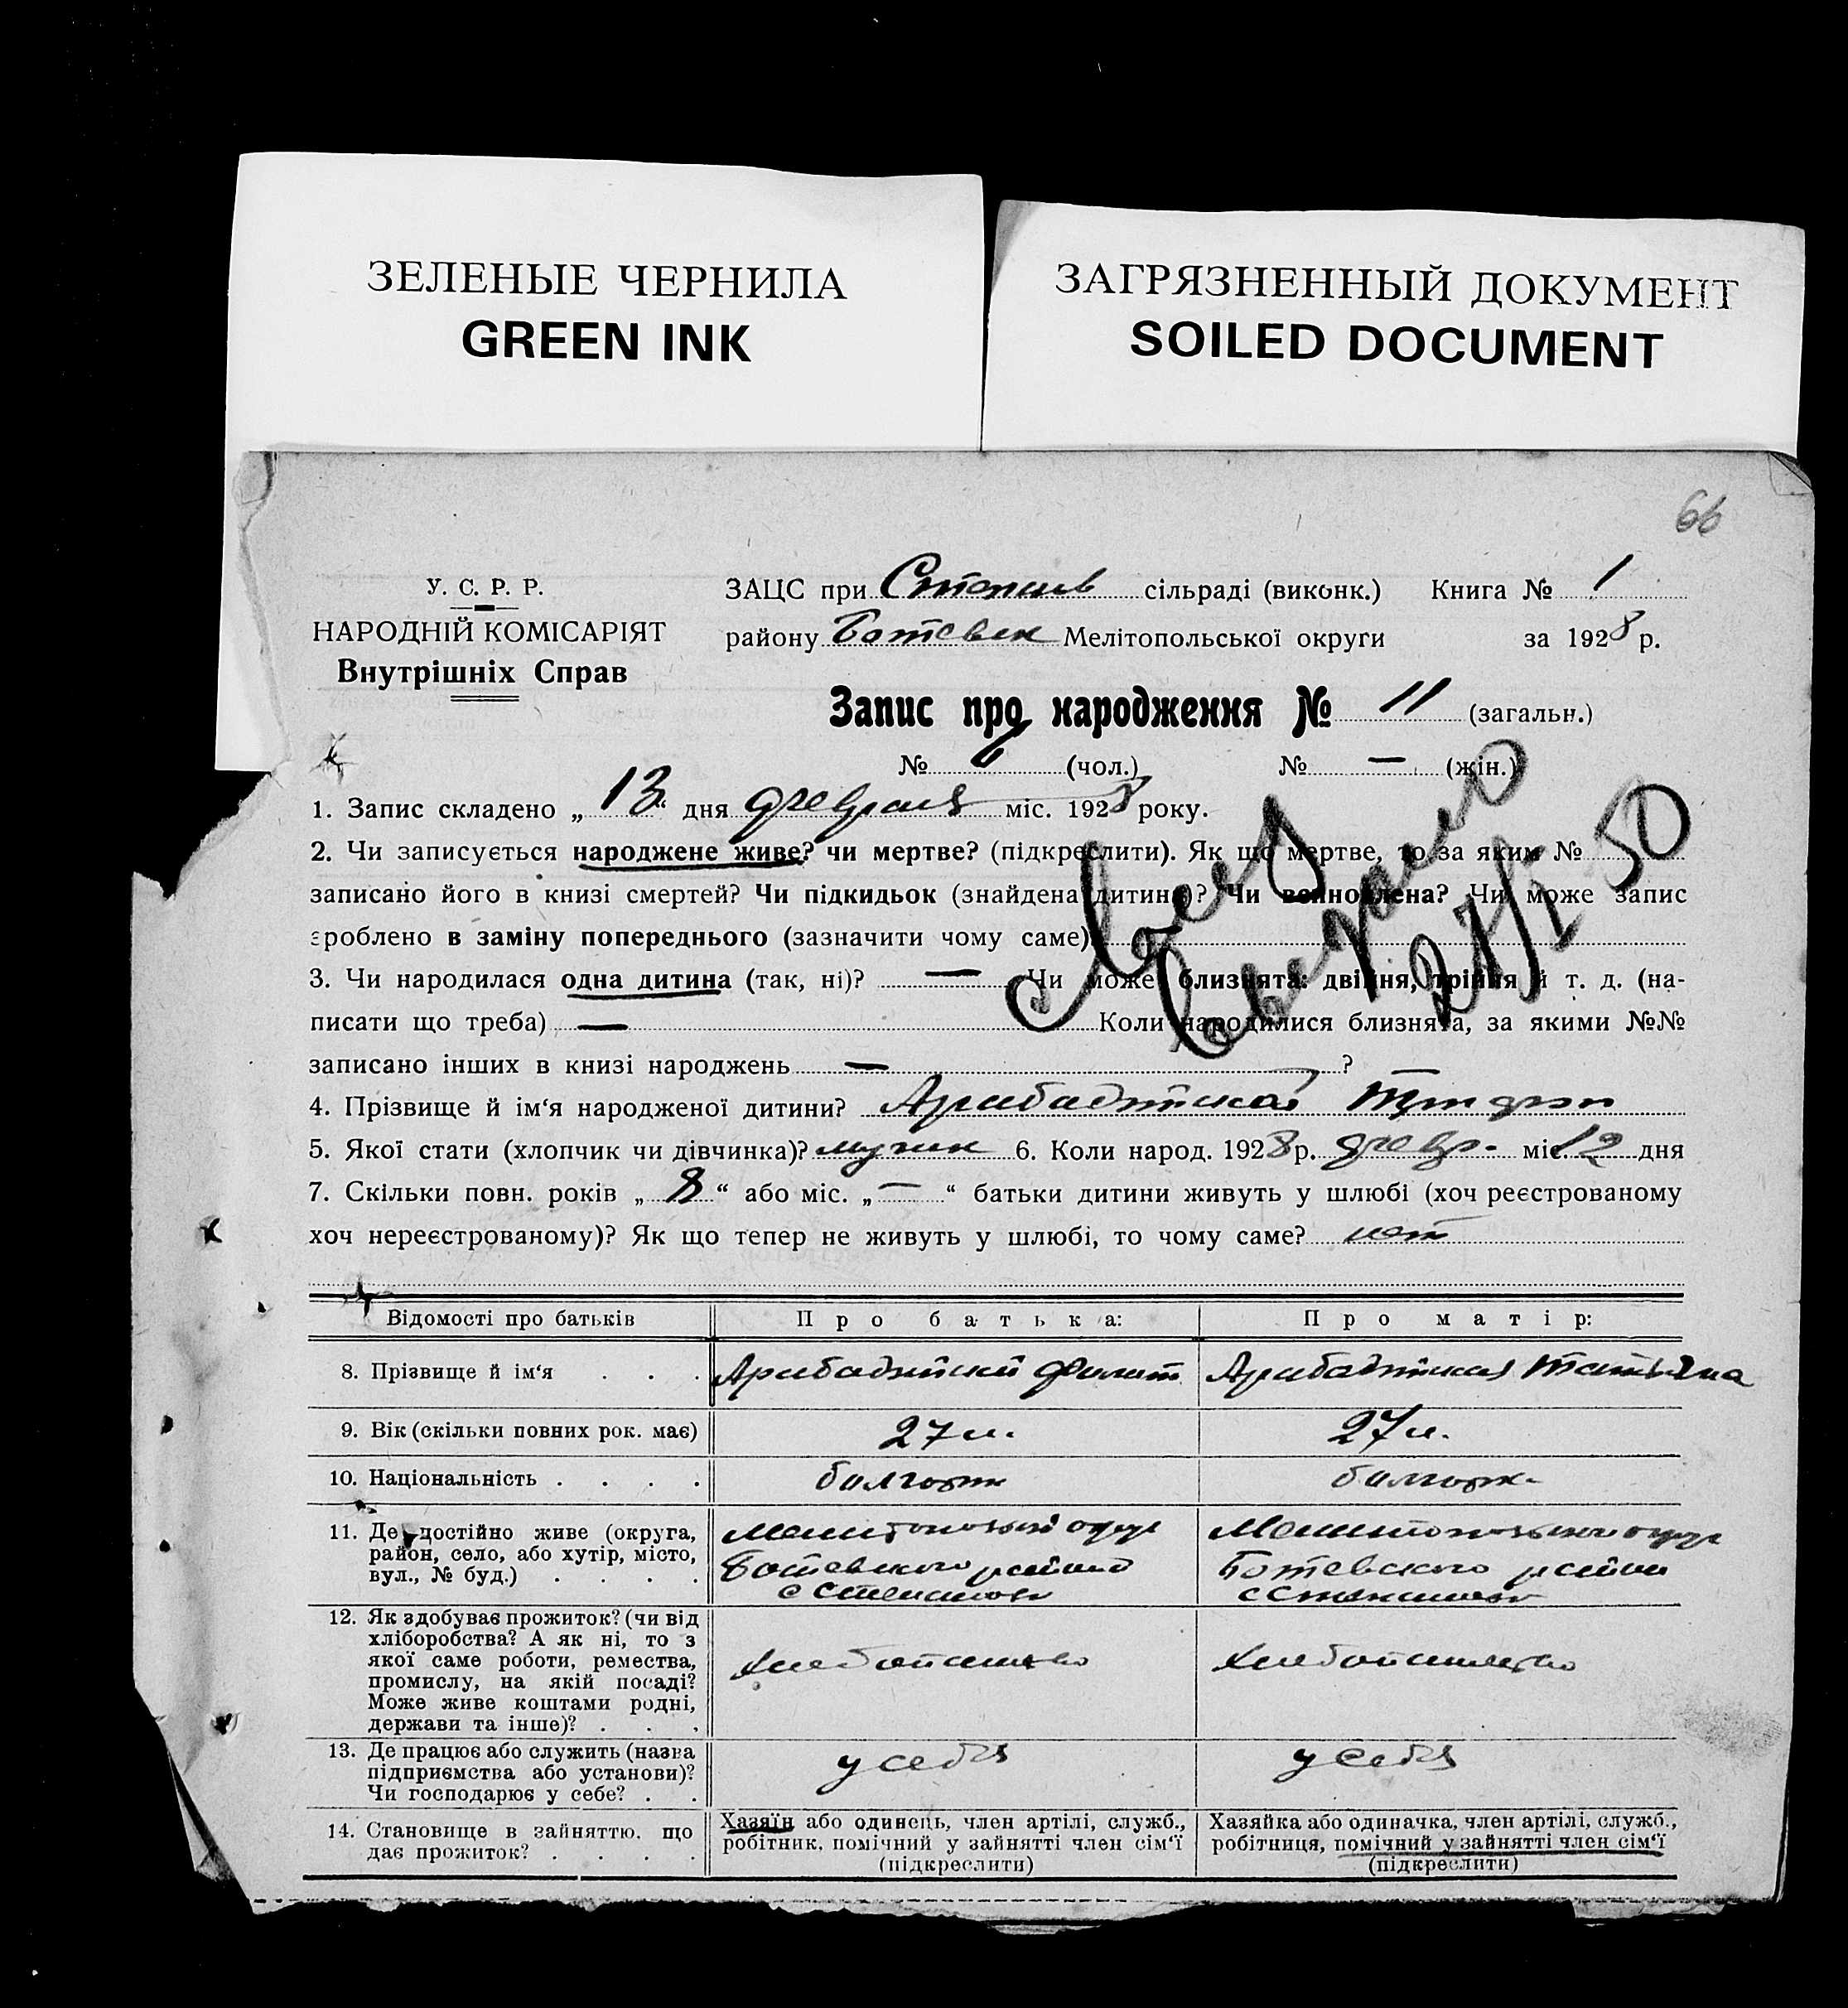 ЗЕЛЕНЫЕ ЧЕРНИЛА
GREEN INK
ЗАГРЯЗНЕННЫЙ ДОКУМЕНТ
SOILED DOCUMENT
66
У. С. Р. Р.
НАРОДНІЙ КОМІСАРІЯТ
Внутрішніх Справ
ЗАЦС при Степанів сільраді (виконк.) Книга № 1
району Ботевск Мелітопольської округи за 1928 р.
Запис про народження № 11 (загальн.)
№ 6 (чол.) № — (жін.)
1. Запис складено „ 13 “ дня февраля міс. 1928 року.
2. Чи записується народжене живе? чи мертве? (підкреслити). Як що мертве, то за яким №
записано його в книзі смертей? Чи підкидьок (знайдена дитина)? Чи Чи може запис
зроблено в заміну попереднього (зазначити чому саме)
3. Чи народилася одна дитина (так, ні)? — Чи може близнята: двійня, трійня й т. д. (на-
писати що треба) — Коли народилися близнята, за якими №№
записано інших в книзі народжень — ?
4. Прізвище й ім‘я народженої дитини?
5. Якої стати (хлопчик чи дівчинка)? мужск 6. Коли народ. 1928 р. февр. міс. 12 дня
7. Скільки повн. років „ 8 “ або міс. „ — “ батьки дитини живуть у шлюбі (хоч реєстрованому
хоч нереєстрованому)? Як що тепер не живуть у шлюбі, то чому саме? нет
Відомості про батьків
Про батька:
Про матір:
8. Прізвище й ім‘я . . .
Филип
Татьяна
9. Вік (скільки повних рок. має)
27 л.
27 л.
10. Національність . . . .
болгарин
болгарк.
11. Де постійно живе (округа,
район, село, або хутір, місто,
вул., № буд.) . . . .
Мелитопольский округ
Ботевского района
с Степановк
Мелитопольского округ
Ботевского района
с Степановк
12. Як здобуває прожиток? (чи від
хліборобства? А як ні, то з
якої саме роботи, ремества,
промислу, на якій посаді?
Може живе коштами родні,
держави та інше)? . . .
хлебопашество
хлебопашество
13. Де працює або служить (назва
підприємства або установи)?
Чи господарює у себе? . .
у себя
у себя
14. Становище в зайняттю, що
дає прожиток? . . . .
Хазяїн або одинець, член артілі, служб.,
робітник, помічний у зайнятті член сім‘ї
(підкреслити)
Хазяйка або одиначка, член артілі, служб.,
робітниця, помічний у зайнятті член сім‘ї
(підкреслити)